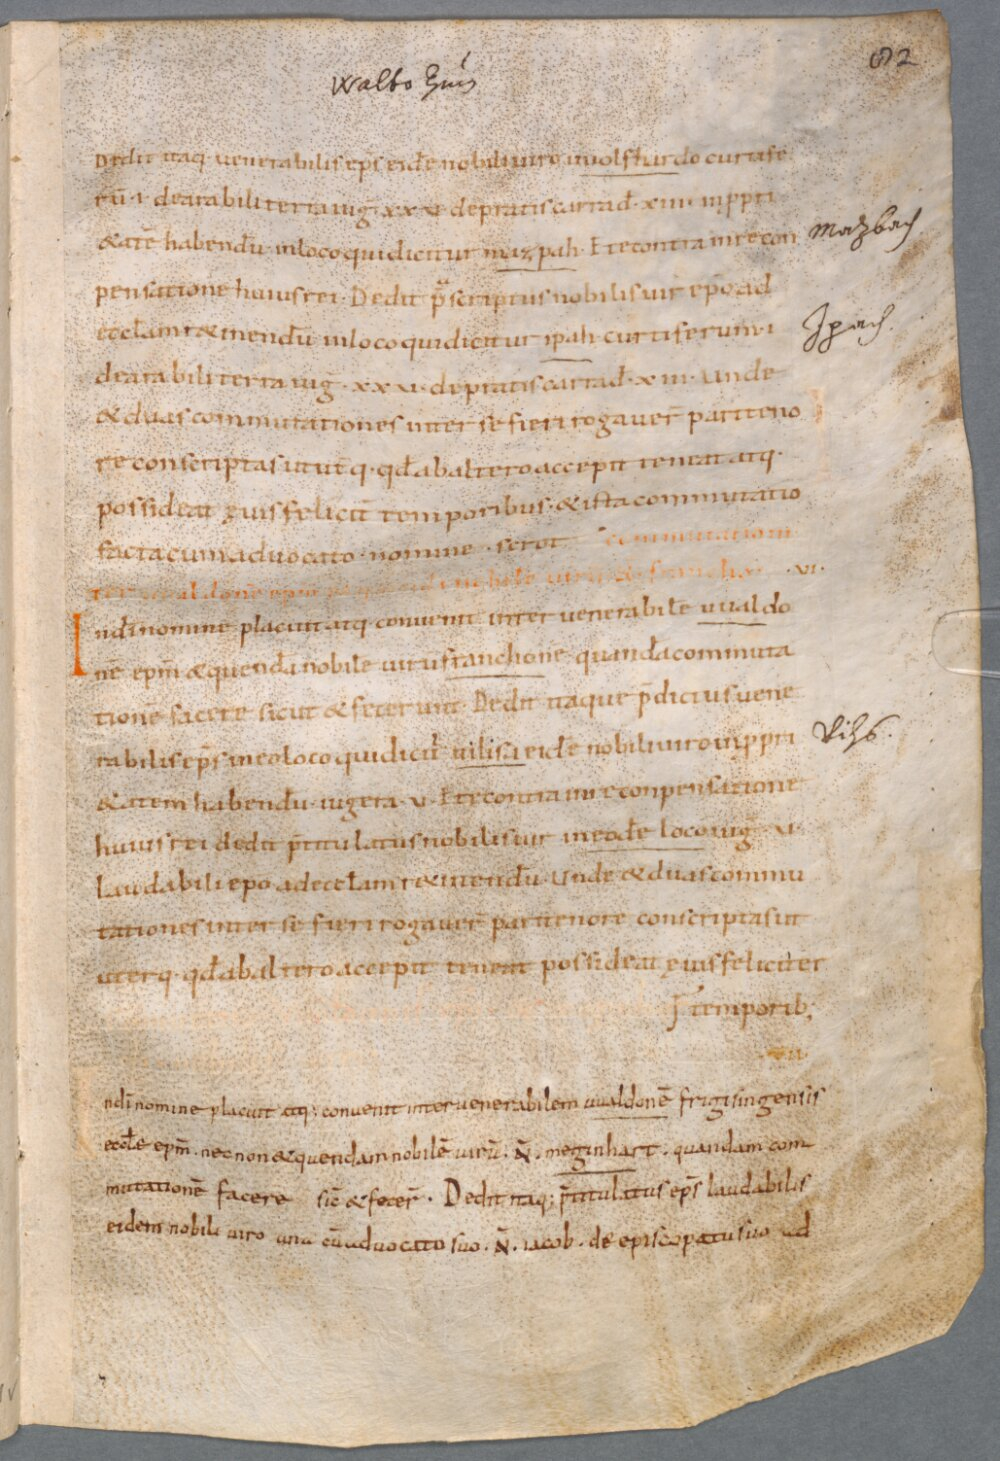 Walto Epūs
682
Dedit itaq· venerabilis ep̄s eidē nobili viro in uuolfturdo curtife
rū ·i· de arabili terra iuḡ ·xxxv· de pratis carrad̄ ·xiiii· in ꝓpri
&atē habendū in loco qui dicitur mazpah· Et econtra in recon
mazbach
pensatione huius rei· Dedit p̄scriptus nobilis vir ep̄o ad
eccl̄am r&inendū in loco qui dicitur ipah curtiferum ·i·
Ipach.
de arabili terra iuḡ ·xxxi· de pratis carrad̄ ·xiii· Unde
&duas commutationes inter se fieri rogaver̄ pari teno
re conscriptas ut ut̄q· qd̄ ab altero accepit teneat atq·
possideat ęuis felicit̄ temporibus· &ista commutatio
facta cum advocato· nomine· Scrot Commutatio in
ter ep̄m nobilē virū ·vi·
Indi nomine placuit atq· convenit inter venerabilē uualdo
nē ep̄m &quendā nobilē virū franchonē quandā commuta
tionē facere sicut &fecerunt· Dedit itaque p̄dictus vene
rabilis ep̄s in eo loco qui dicit̄ uilisa eidē nobili viro in ꝓpri
Vihs.
&atem habendū· iugera ·v· Et econtra in reconpensatione
huius rei dedit p̄titulatus nobilis vir in eodē loco iuḡ ·vi·
Laudabili ep̄o ad eccl̄am r&inendū· Unde &duas commu
tationes inter se fieri rogaver̄ pari tenore conscriptas ut
uterq· qd̄ ab altero accepit teneat possideat ęuis feliciter
temporib;
·vii·
Indi nomine placuit atq; convenit inter venerabilem uualdonē frigisingensis
eccl̄e ep̄m· nec non &quendam nobilē virū· N̄· meginhart· quandam com
mutationē facere sic̄ &fecer̄· Dedit itaq; p̄titulatus ep̄s laudabilis
eidem nobili viro una cū advocato suo· N̄· iacob· de episcopatu suo ad